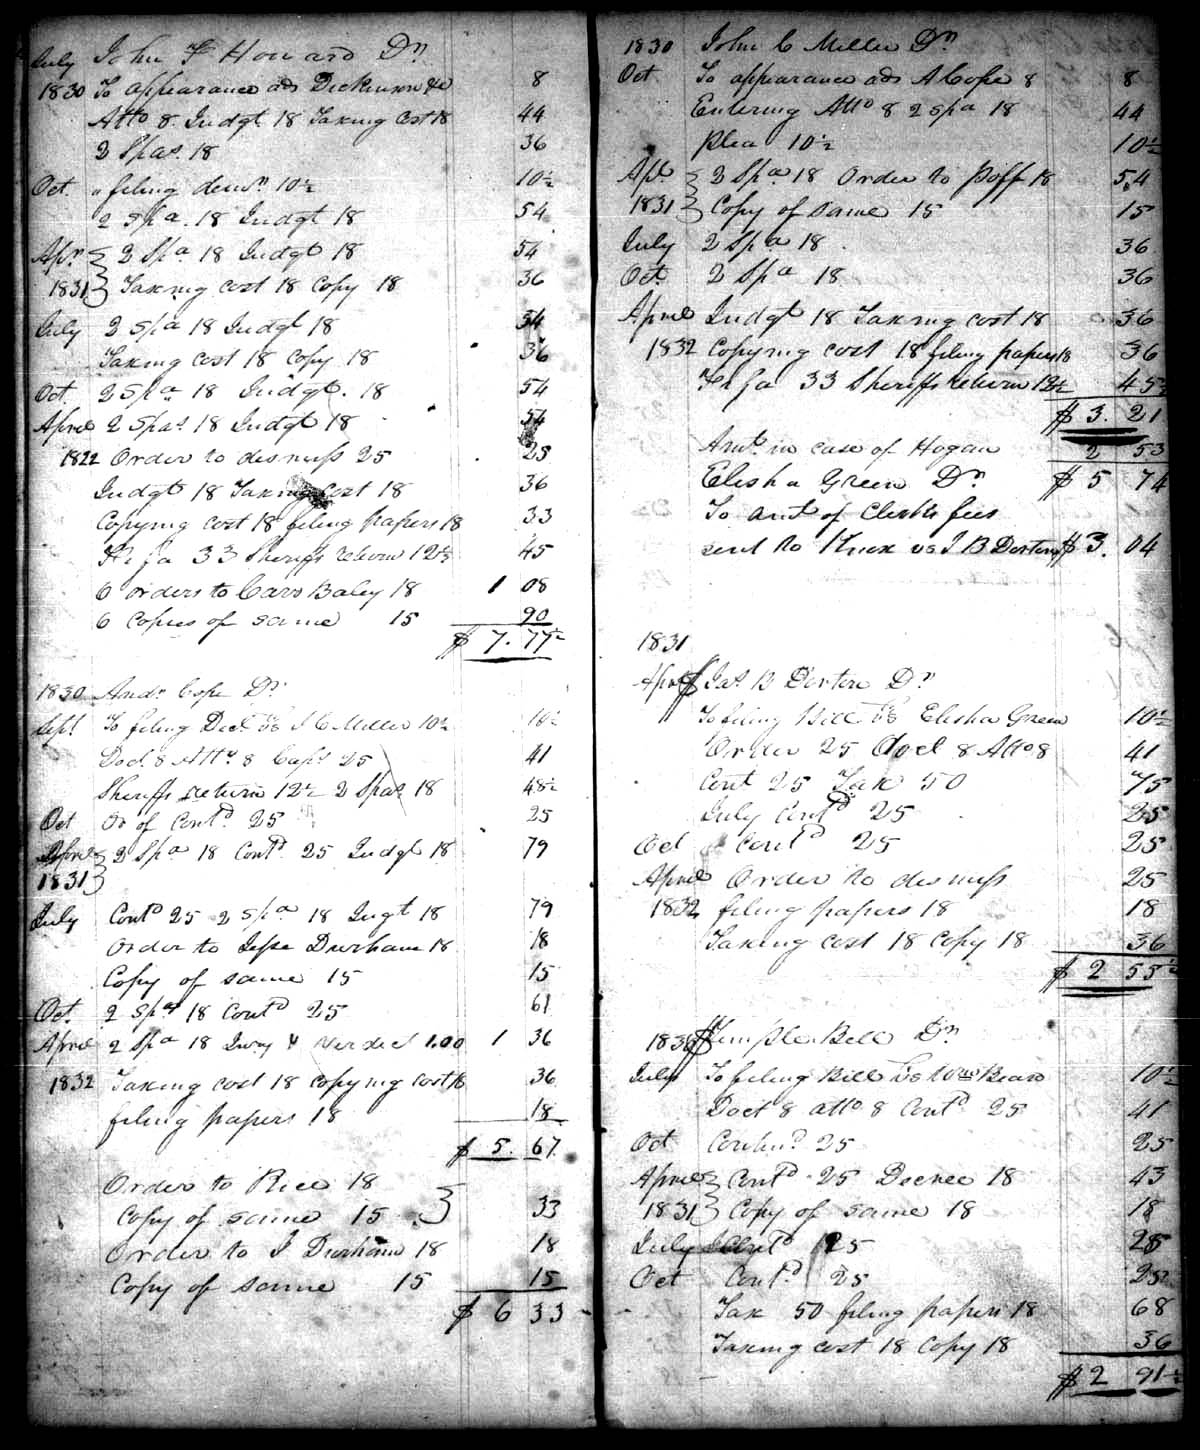 July John F Howard Dr
1830 To appearance ads Dickinson &c 8
Atto 8 Judgt 18 Taking Cost 18 44
2 Spas. 18 36
Oct. " filing demr 10½ 10½
2 spa. 18 Judgt 18 54
Apr. 2 Spa 18 Judgt 18 54
1831 Taking cost 18 Copy 18 36
July 2 spa 18 Judgt 18 54
Taking cost 18 Copy 18 36
Oct. 2 spa 18 Judgt. 18 54
April 2 Spas 18 Judgt 18 54
1822 Order to dismiss 25 25
Judgt 18 Taking Cost 18 36
Copying cost 18 filing papers 18 33
Fi fa 33 Sheriffs return 12½ 45
6 orders to Caro Baley 18 1 08
6 Copies of same 15 90
$ 7.77½
1830 Andr Cope Dr
Sept To filing Decl vs J C Miller 10½ 10½
Docl 8 Atty 8 Caps 25 41
Sheriffs return 12½ 2 Spas 18 48½
Oct Or of Contd. 25 25
April 2 Spa 18 Contd. 25 Judgt 18 79
1831
July Contd 25 2 spa 18 Jugt 18 79
Order to Jesse Durham 18 18
Copy of same 15 15
Oct. 2 Spas 18 Contd 25 61
April 2 Spa 18 Jury & verdict 1.00 1 36
1832 Taking cost 18 Copying Cost 18 36
filing papers 18 18
$ 5.67
Order to Rice 18
Copy of same 15 33
Order to J Durham 18 18
Copy of same 15 15
$ 6 33
1830 John C Miller Dr
Oct To appearance ads A Cope 8 8
Entering Atto 8 2 spa 18 44
plea 10½ 10½
Apl. 2 Spa 18 Order to Poff 18 54
1831 Copy of same 15 15
July 2 Spa 18. 36
Oct. 2 Spa 18. 36
April Judgt 18 Taking cost 18 36
1832 Copying cost 18 filing papers 18 36
Fi fa 33 Sheriffs return 12½ 45½
$ 3.21
Amt. in case of Hogan 2 53
Elisha Green Dr $ 5 74
To amt of Clerks fees
sent to Knox vs J B Dorten $ 3.04
1831
April Jas B Dorten Dr
To filing Bill vs Elisha Green 10½
Order 25 Docl 8 Atto 8 41
Cont 25 Tax 50 75
July Contd 25 25
Oct Contd 25 25
April Order to dismiss 25
1832 filing papers 18 18
Taking cost 18 Copy 18 36
$ 2 55½
1830 Temple Bell Dr
July To filing Bill vs Wm Bean 10½
Doct 8 atto 8 Contd 25 41
Oct Contind 25 25
April Contd 25 Decree 18 43
1831 Copy of same 18 18
July Contd 25 25
Oct Contd. 25 25
Tax 50 filing papers 18 68
Taking cost 18 Copy 18 36
$ 2 91½